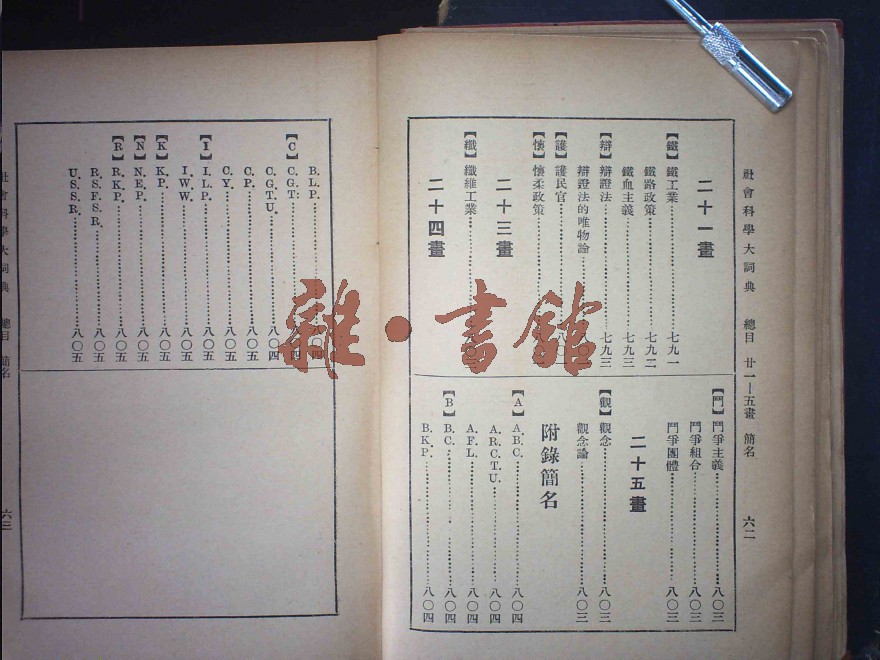 社會科學大詞典 總目 廿一—五畫 簡名 六二
二十一畫
【鐵】鐵工業……七九一
鐵路政策……七九二
鐵血主義……七九三
【辯】辯證法……七九三
辯證法的唯物論……
【護】護民官……八
【懷】懷柔政策……
二十三畫
【纖】纖維工業……
二十四畫
【鬥】鬥爭主義……八〇三
鬥爭組合……八〇三
鬥爭團體……八〇三
二十五畫
【觀】觀念……八〇三
觀念論……八〇三
附錄簡名
【A】A.B.C.……八〇四
A.R.C.T.U.……八〇四
A.F.L.……八〇四
【B】B.C.……八〇四
B.K.P.……八〇四
B.L.P.……八〇四
【C】C.G.T.……八〇四
C.G.T.U.……八〇四
C.P.……八〇五
C.Y.……八〇五
【I】I.L.P.……八〇五
I.W.W.……八〇五
【K】K.P.……八〇五
【N】N.E.P.……八〇五
【R】R.K.P.……八〇五
R.S.F.S.R.……八〇五
U.S.S.R.……八〇五
社會科學大詞典 總目 簡名 六三
雜·書館